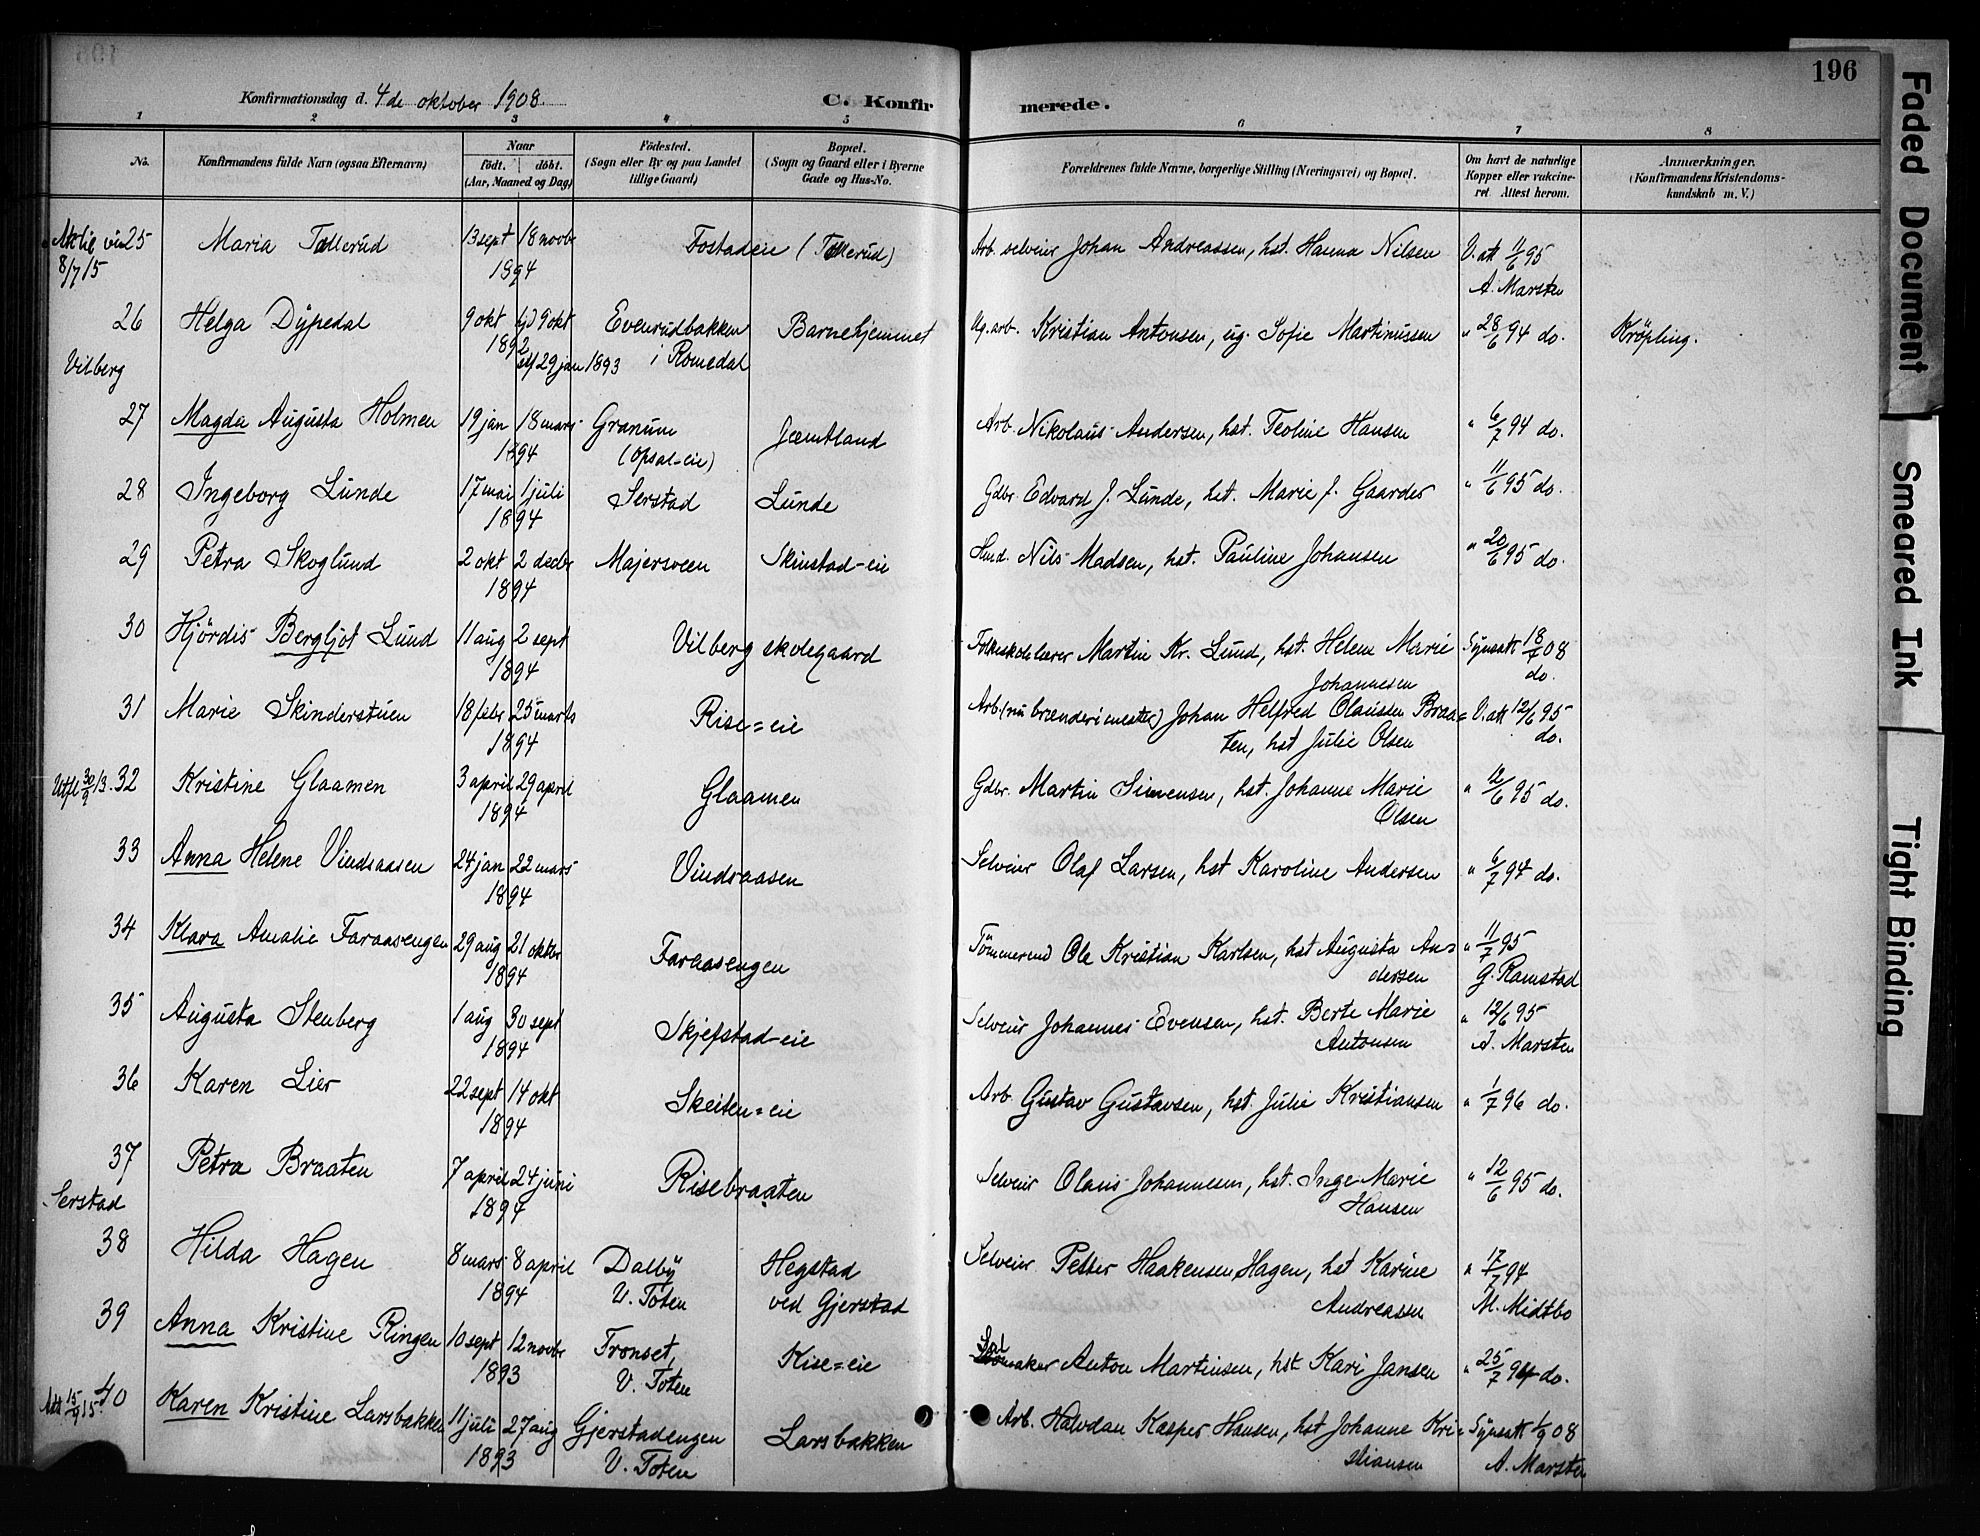 196
Konfirmationsdag d. 4de oktober 1908.
C. Konfirmerede.
1 2 3 4 5 6 7 8
No. Konfirmandens fulde Navn (ogsaa Efternavn) Naar født. døbt. (Aar, Maaned og Dag) Fødested. (Sogn eller By og paa Landet tillige Gaard) Bopæl. (Sogn og Gaard eller i Byerne Gade og Hus-No. Forældrenes fulde Navne, borgerlige Stilling (Næringsvei) og Bopæl. Om havt de naturlige Kopper eller vakcineret. Attest herom. Anmærkninger. (Konfirmandens Kristendomskundskab m. V.)
25 Maria Tollerud 13 sept 18 novbr Fostadeie (Tollerud) Arb. selveier Johan Andreassen, hst. Hanna Nilsen V. att 11/6 95
8/7 15 1894 A. Marsten
26 Helga Dypedal 9 okt hjd 9 okt Evenrudbakken Barnehjemmet Ug. arb. Kristian Antonsen, ug. Sofie Martinussen " 28/6 94 do. Kröpling.
Vilberg 1892 29 jan 1893 i Romedal
27 Magda Augusta Holmen 19 jan 18 mars Granum Jæmtland Arb. Nikolaus Andersen, hst. Teoline Hansen " 6/7 94 do.
1894 (Opsal-eie)
28 Ingeborg Lunde 17 mai 1 juli Serstad Lunde Gdbr. Edvard J. Lunde, hst. Marie J. Gaarder " 11/6 95 do.
1894
29 Petra Skoglund 2 okt 2 decbr Majersveen Skinstad-eie Nils Madsen, hst. Pauline Johansen " 20/6 95 do.
1894
30 Hjördis Bergljot Lund 11 aug 2 sept Vilberg skolegaard Folkeskolelærer Martin Kr. Lund, hst. Helene Marie Synsatt 18/7 08
1894 Johannesen do.
31 Marie Skinderstuen 18 febr 25 marts Rise=eie Arb. (nu brænderimester) Johan Helfred Olaussen Braa= V. att 12/6 95
1894 ten, hst Julie Olsen do.
Utfl 30/9 13. 32 Kristine Glaamen 3 april 29 april Glaamen Gdbr. Martin Simensen, hst. Johanne Marie " 12/6 95 do.
1894 Olsen
33 Anna Helene Vindsaasen 24 jan 22 mars Vindsaasen Selveier Olaf Larsen, hst Karoline Andersen " 6/7 94 do.
1894
34 Klara Amalie Faraasengen 29 aug 21 oktbr Faraasengen Tömmermd Ole Kristian Karlsen, hst Augusta An= " 11/7 95
1894 dersen G. Ramstad
35 Augusta Stenberg 1 aug 30 sept Skjefstad-eie Selveier Johannes Evensen, hst. Berte Marie " 12/6 95
1894 Antonsen A. Marsten
36 Karen Lier 22 sept 14 okt Skeiten=eie Arb. Gustav Gustavsen, hst. Julie Kristiansen " 1/7 96 do.
1894
37 Petra Braaten 7 april 24 juni Risebraaten Selveier Olaus Johannesen, hst. Inge Marie " 12/6 95 do.
Serstad 1894 Hansen
38 Hilda Hagen 8 mars 8 april Dalby Hegstad Selveier Petter Haakensen Hagen, hst Karine " 17/7 94
1894 V. Toten ved Gjerstad Andreassen M. Midtbo
39 Anna Kristine Ringen 10 sept 12 novbr Tronset, Rise=eie Anton Martinsen, hst Kari Jansen " 25/7 94 do.
1893 V. Toten
15/9 15. 40 Karen Kristine Larsbakken 11 juli 27 aug Gjerstadengen Larsbakken Arb. Halvdan Kasper Hansen, hst Johanne Kri= Synsatt 1/9 08
1893 V. Toten stiansen A. Marsten
Faded Document
Smeared Ink
Tight Binding